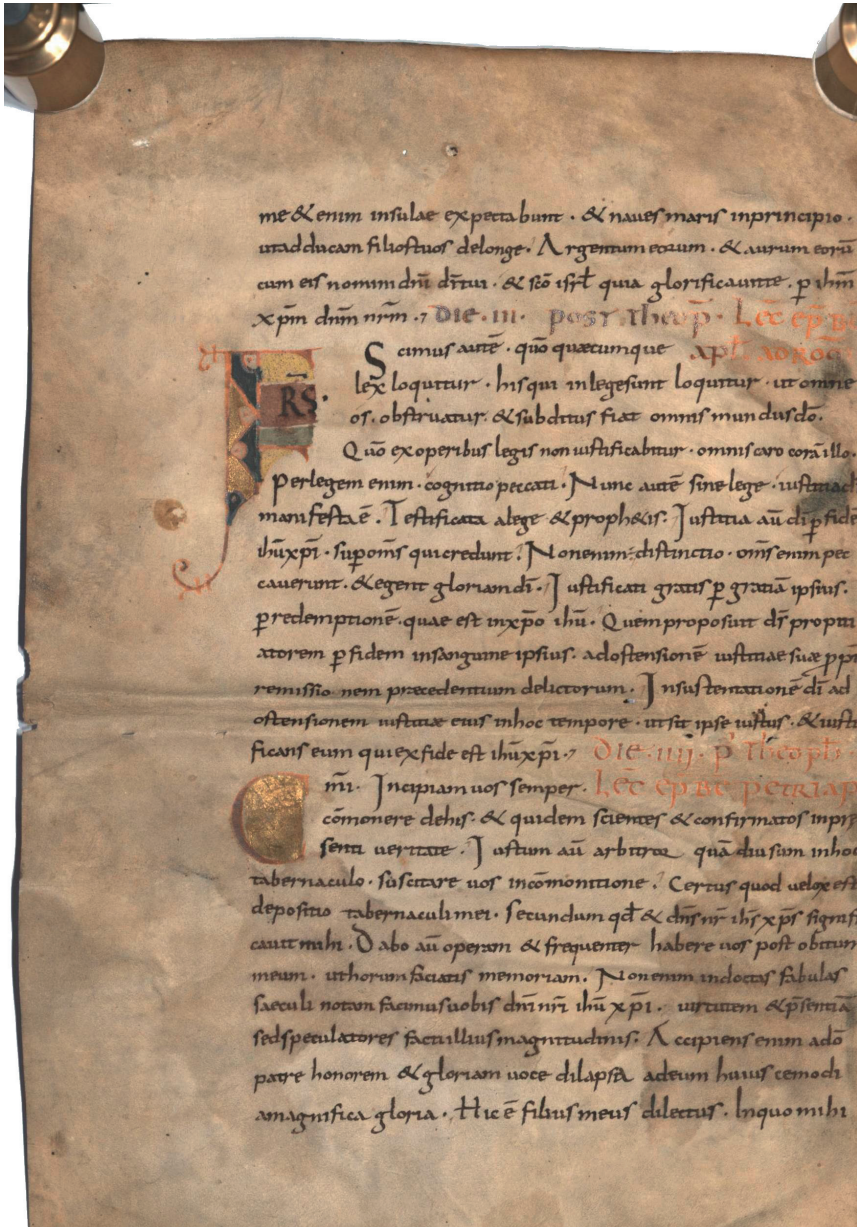 me & enim insulae expectabunt · & naues maris inprincipio ·
utadducam filiostuos delonge · Argentum eorum · & aurum eorū
cum eis nomini dnī dītui · & scō isrł quia glorificauitte · ꝑ ihm̄
xpm̄ dnm̄ nrm̄ · Die · III · post theop̄ · Lec̄ ep̄
Scimus autē · quō quaecumque apł ad ro
FRS̄ · lex loquitur · hisqui inlegesunt loquitur · ut omne
os · obstruatur · & subditus fiat omnis mundus dō ·
Quō exoperibus legis non iustificabitur · omnis caro corā illo ·
Perlegem enim · cognitio peccati · Nunc autē sine lege · iustitia di
manifesta ē · Testificata alege & proph&is · Iustitia aū dī ꝑ fidē
ihū xpī · suꝑ om̄s quicredunt · Nonenim distinctio · om̄s enim pec
cauerunt · & egent gloriam dī · Iustificati gratis ꝑ gratiā ipsius ·
ꝑ redemptionē · quae est inxp̄o ihū · Quem proposuit ds̄ propiti
atorem ꝑ fidem insanguine ipsius · adostensionē iustitiae suae ꝓpt
remissionem praecedentium delictorum · Insustentationē dī ad
ostensionem iustitiae eius inhoc tempore · utsit ipse iustus · & iusti
ficans eum quiexfide est ihū xpī · Die · IIII · p̄ theoph̄
Cm̄i · Incipiam uos semper · Lec̄ ep̄ Be petri ap
cōmonere dehis · & quidem scientes & confirmatos inprę
senti ueritate · Iustum aū arbitror quā diu sum inhoc
tabernaculo · suscitare uos incōmonitione · Certus quod uelox est
depositio tabernaculi mei · Secundum qđ & dn̄s nr̄ ihs̄ xp̄s signifi
cauit mihi · Dabo aū operam & frequenter habere uos post obitum
meum · uthorum faciatis memoriam · Nonenim indoctas fabulas
saeculi notam facimus uobis dn̄i nr̄i ihū xpī · uirtutem & p̄sentiā
sedspeculatores facti illius magnitudinis · Accipiens enim adō
patre honorem & gloriam uoce dilapsa adeum huiuscemodi
amagnifica gloria · Hic ē filius meus dilectus · Inquo mihi